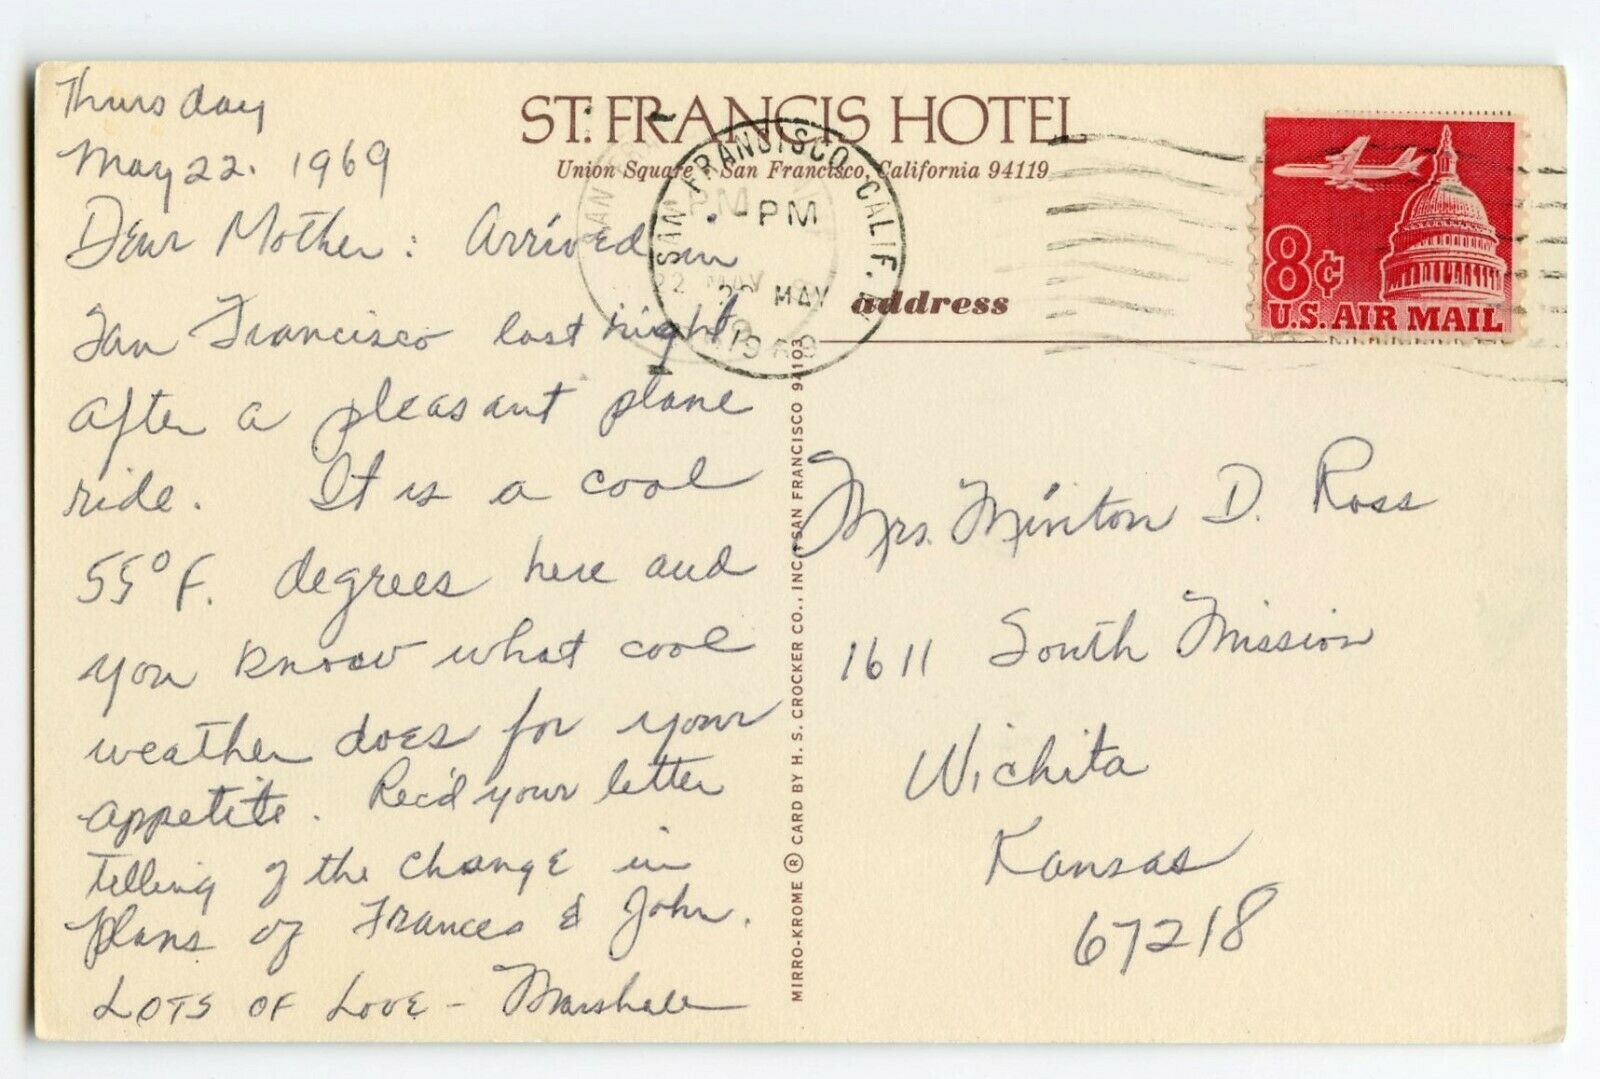 Thursday
May 22. 1969
Dear Mother: Arrived in
San Francisco last night
after a pleasant plane
ride. It is a cool
55°F. degrees here and
you know what cool
weather does for your
appetite. Rec'd your letter
telling of the change in
plans of Frances & John.
LOTS OF LOVE - Marshall
ST. FRANCIS HOTEL
Union Square · San Francisco, California 94119
SAN FRANCISCO, CALIF.
PM
MAY
1969
22 MAY
PM
address
8¢
U.S. AIR MAIL
Mrs. Minton D. Ross
1611 South Mission
Wichita
Kansas
67218
MIRRO-KROME ® CARD BY H. S. CROCKER CO., INC., SAN FRANCISCO 94103